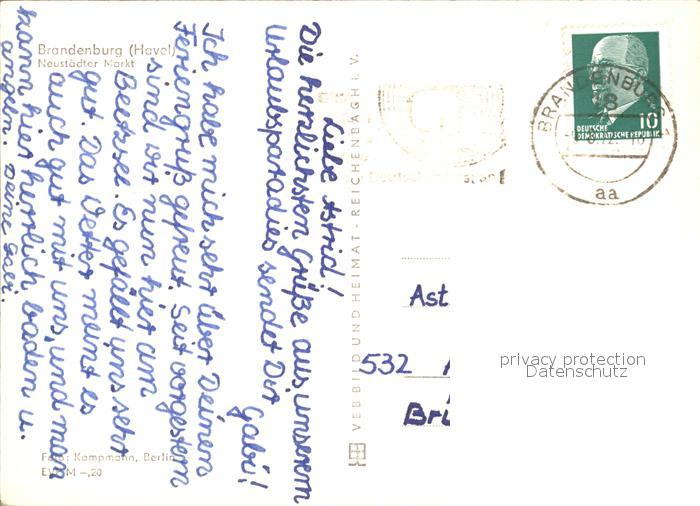 Brandenburg (Havel)
Neustädter Markt
Liebe Astrid!
Die herzlichsten Grüße aus unserem
Urlaubsparadies sendet Dir
Gabi!
Ich habe mich sehr über Deinen
Feriengruß gefreut. Seit vorgestern
sind wir nun hier am
Beetzsee. Es gefällt uns sehr
gut. Das Wetter meint es
auch gut mit uns, und man
kann hier herrlich baden u.
angeln. Deine Gabi.
Foto: Kampmann, Berlin
EVP M -,20
VEB BILD UND HEIMAT · REICHENBACH I. V.
BRANDENBURG 1
18
72
aa
10
DEUTSCHE
DEMOKRATISCHE REPUBLIK
Ast
532
Brü
privacy protection
Datenschutz